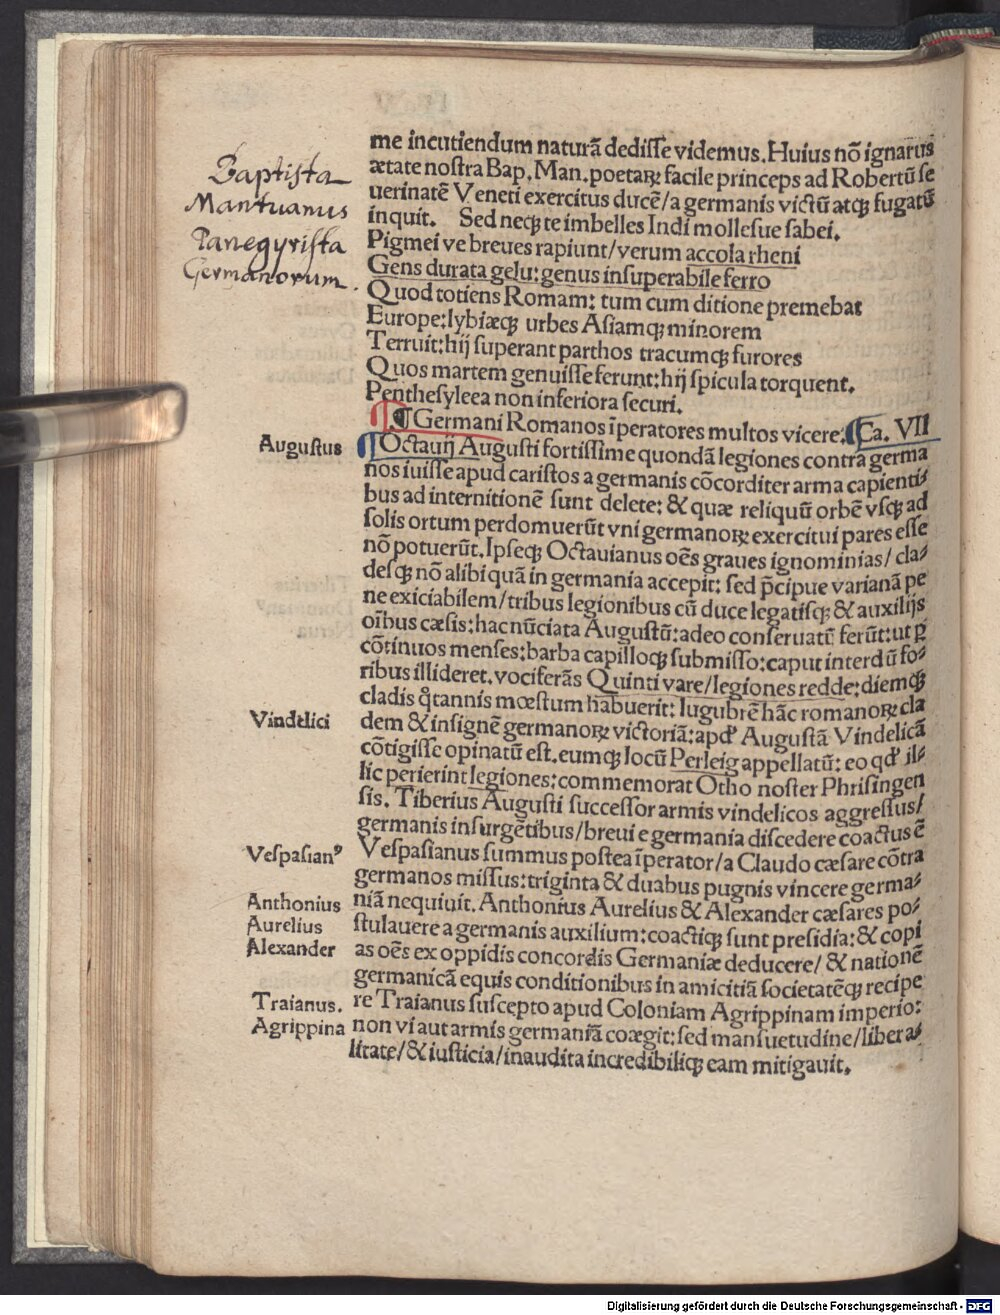 me incutiendum naturã dedisse videmus. Huius nõ ignarus
ætate nostra Bap. Man. poetaꝝ facile princeps ad Robertũ se
uerinatẽ Veneti exercitus ducẽ/ a germanis victũ atqꝫ fugatũ
inquit. Sed neqꝫ te imbelles Indi mollesue sabei.
Pigmei ve breues rapiunt/verum accola rheni
Gens durata gelu: genus insuperabile ferro
Quod totiens Romam: tum cum ditione premebat
Europe: lybiæqꝫ urbes Asiamqꝫ minorem
Terruit: hij superant parthos tracumqꝫ furores
Quos martem genuisse ferunt: hij spicula torquent.
Penthesyleea non inferiora securi.
¶ Germani Romanos ĩperatores multos vicere: Ca. VII
Octauij Augusti fortissime quondã legiones contra germa
nos iuisse apud caristos a germanis cõcorditer arma capienti⸗
bus ad internitionẽ sunt delete: & quæ reliquũ orbẽ vsqꝫ ad
solis ortum perdomuerũt vni germanoꝝ exercitui pares esse
nõ potuerũt. Ipseqꝫ Octauianus oẽs graues ignominias/ cla⸗
desqꝫ nõ alibi quã in germania accepit: sed p̃cipue varianã pe
ne exiciabilem/tribus legionibus cũ duce legatisqꝫ & auxilijs
oĩbus cæsis: hac nũciata Augustũ: adeo conseruatũ ferũt: ut ꝑ
cõtinuos menses: barba capilloqꝫ submisso: caput interdũ fo⸗
ribus illideret. vociferãs Quinti vare/legiones redde: diemqꝫ
cladis q̃tannis mœstum habuerit: lugubrẽ hãc romanoꝝ cla
dem & insignẽ germanoꝝ victoriã: apd' Augustã Vindelicã
cõtigisse opinatũ est. eumqꝫ locũ Perleig appellatũ: eo qd' il⸗
lic perierint legiones: commemorat Otho noster Phrisingen
sis. Tiberius Augusti successor armis vindelicos aggressus/
germanis insurgẽtibus/breui e germania discedere coactus ẽ
Vespasianus summus postea ĩperator/a Claudo cæsare cõtra
germanos missus: triginta & duabus pugnis vincere germa⸗
niã nequiuit. Anthonius Aurelius & Alexander cæsares po⸗
stulauere a germanis auxilium: coactiqꝫ sunt presidia: & copi
as oẽs ex oppidis concordis Germaniæ deducere/ & nationẽ
germanicã equis conditionibus in amicitiã societatẽqꝫ recipe
re Traianus suscepto apud Coloniam Agrippinam imperio:
non vi aut armis germaniã coægit: sed mansuetudine/libera⸗
litate/& iusticia/inaudita incredibiliqꝫ eam mitigauit.
Baptista
Mantuanus
Panegyrista
Germanorum.
Augustus
Vindelici
Vespasianꝰ
Anthonius
Aurelius
Alexander
Traianus.
Agrippina
Digitalisierung gefördert durch die Deutsche Forschungsgemeinschaft - DFG